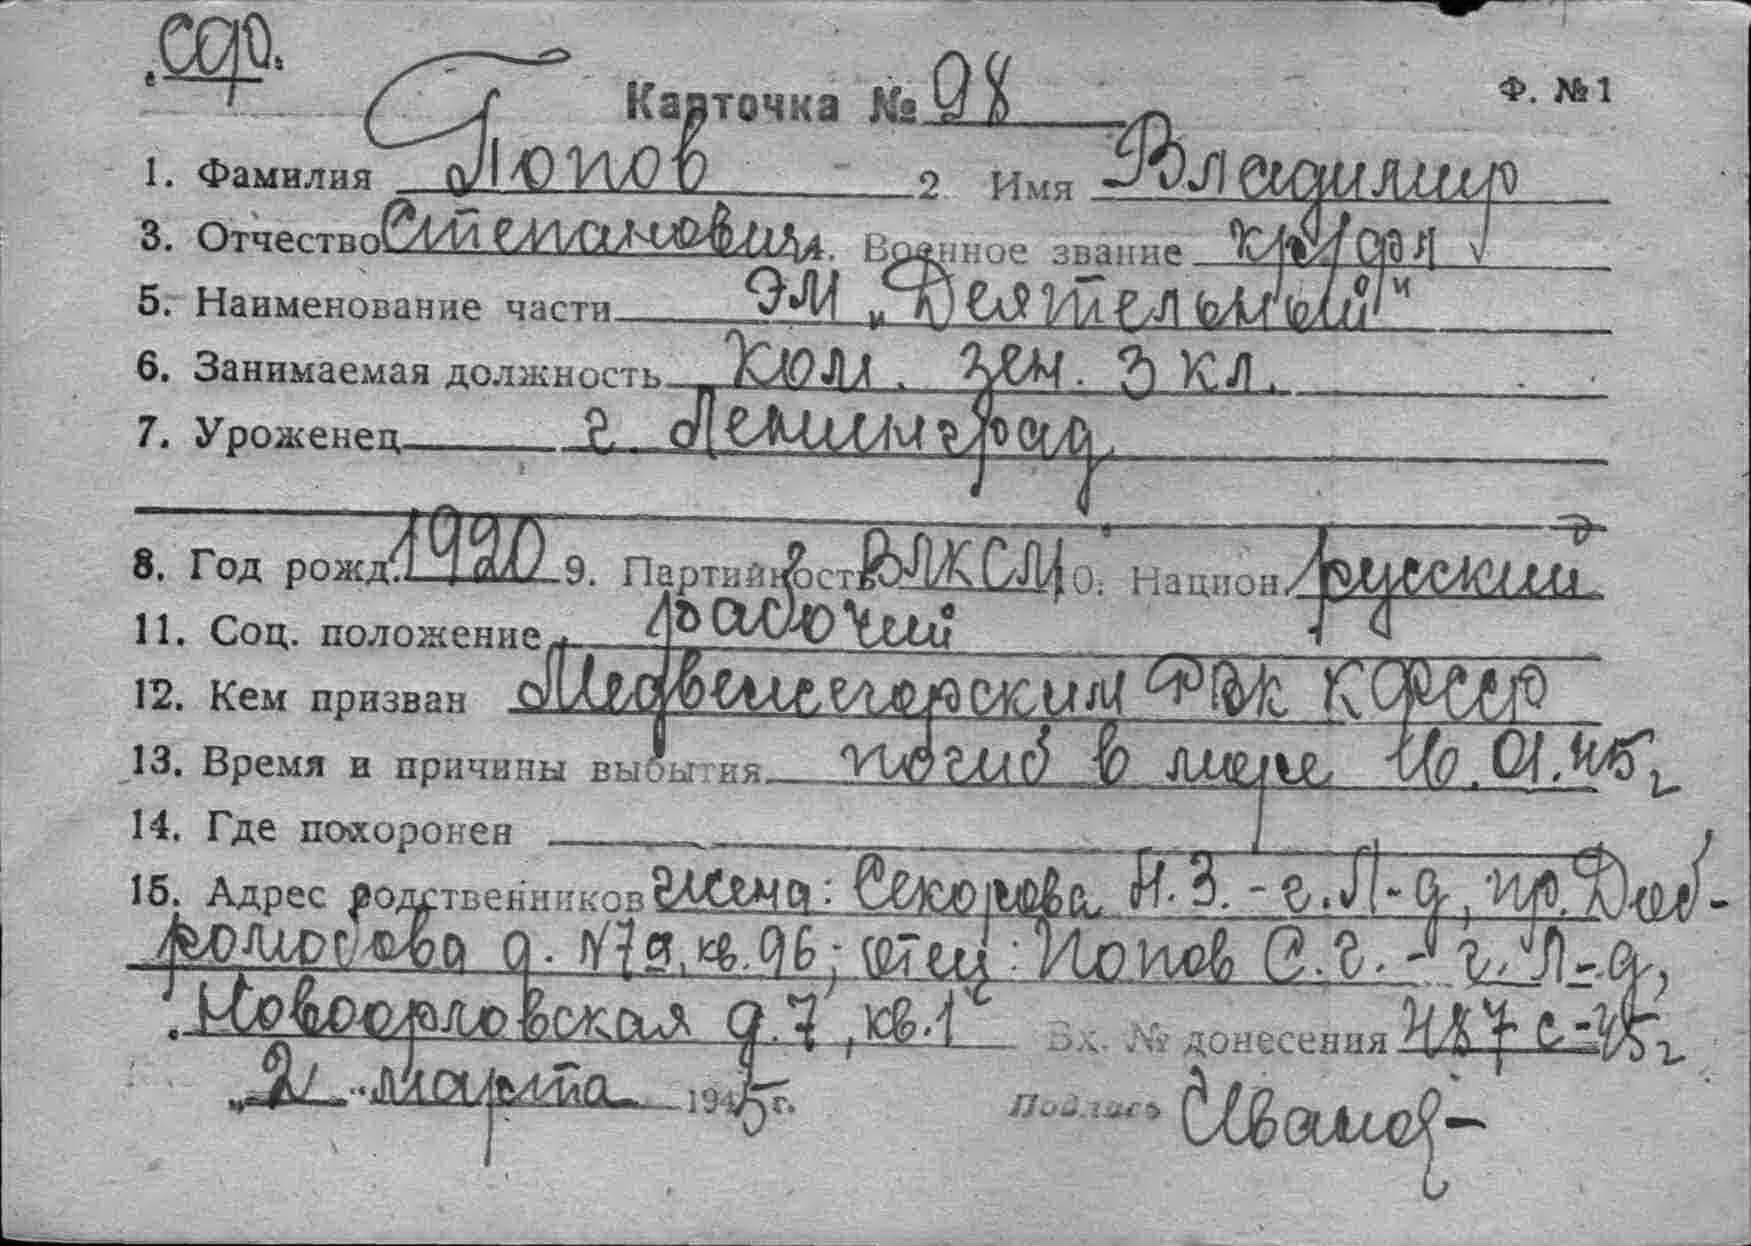 СФ.
Карточка № 98 Ф. №1
1. Фамилия Попов 2 Имя Владимир
3. Отчество Степанович. Военное звание кр/фл
5. Наименование части ЭМ „Деятельный"
6. Занимаемая должность ком. зен. 3 кл.
7. Уроженец г. Ленинград
8. Год рожд. 1920 9. Партийность ВЛКСМ 10. Национ. русский
11. Соц. положение рабочий
12. Кем призван Медвежегорским РВК КФССР
13. Время и причины выбытия погиб в море 16.01.45 г
14. Где похоронен
15. Адрес родственников жена: Секорова Н.З. - г. Л-д, пр. Доб-
ролюбова д. №7а, кв. 96; отец: Попов С.Г. - г. Л-д,
Новоорловская д. 7, кв. 1 Вх. № донесения 487 с-45 г
„2" марта 1945 г. Подпись Иванов